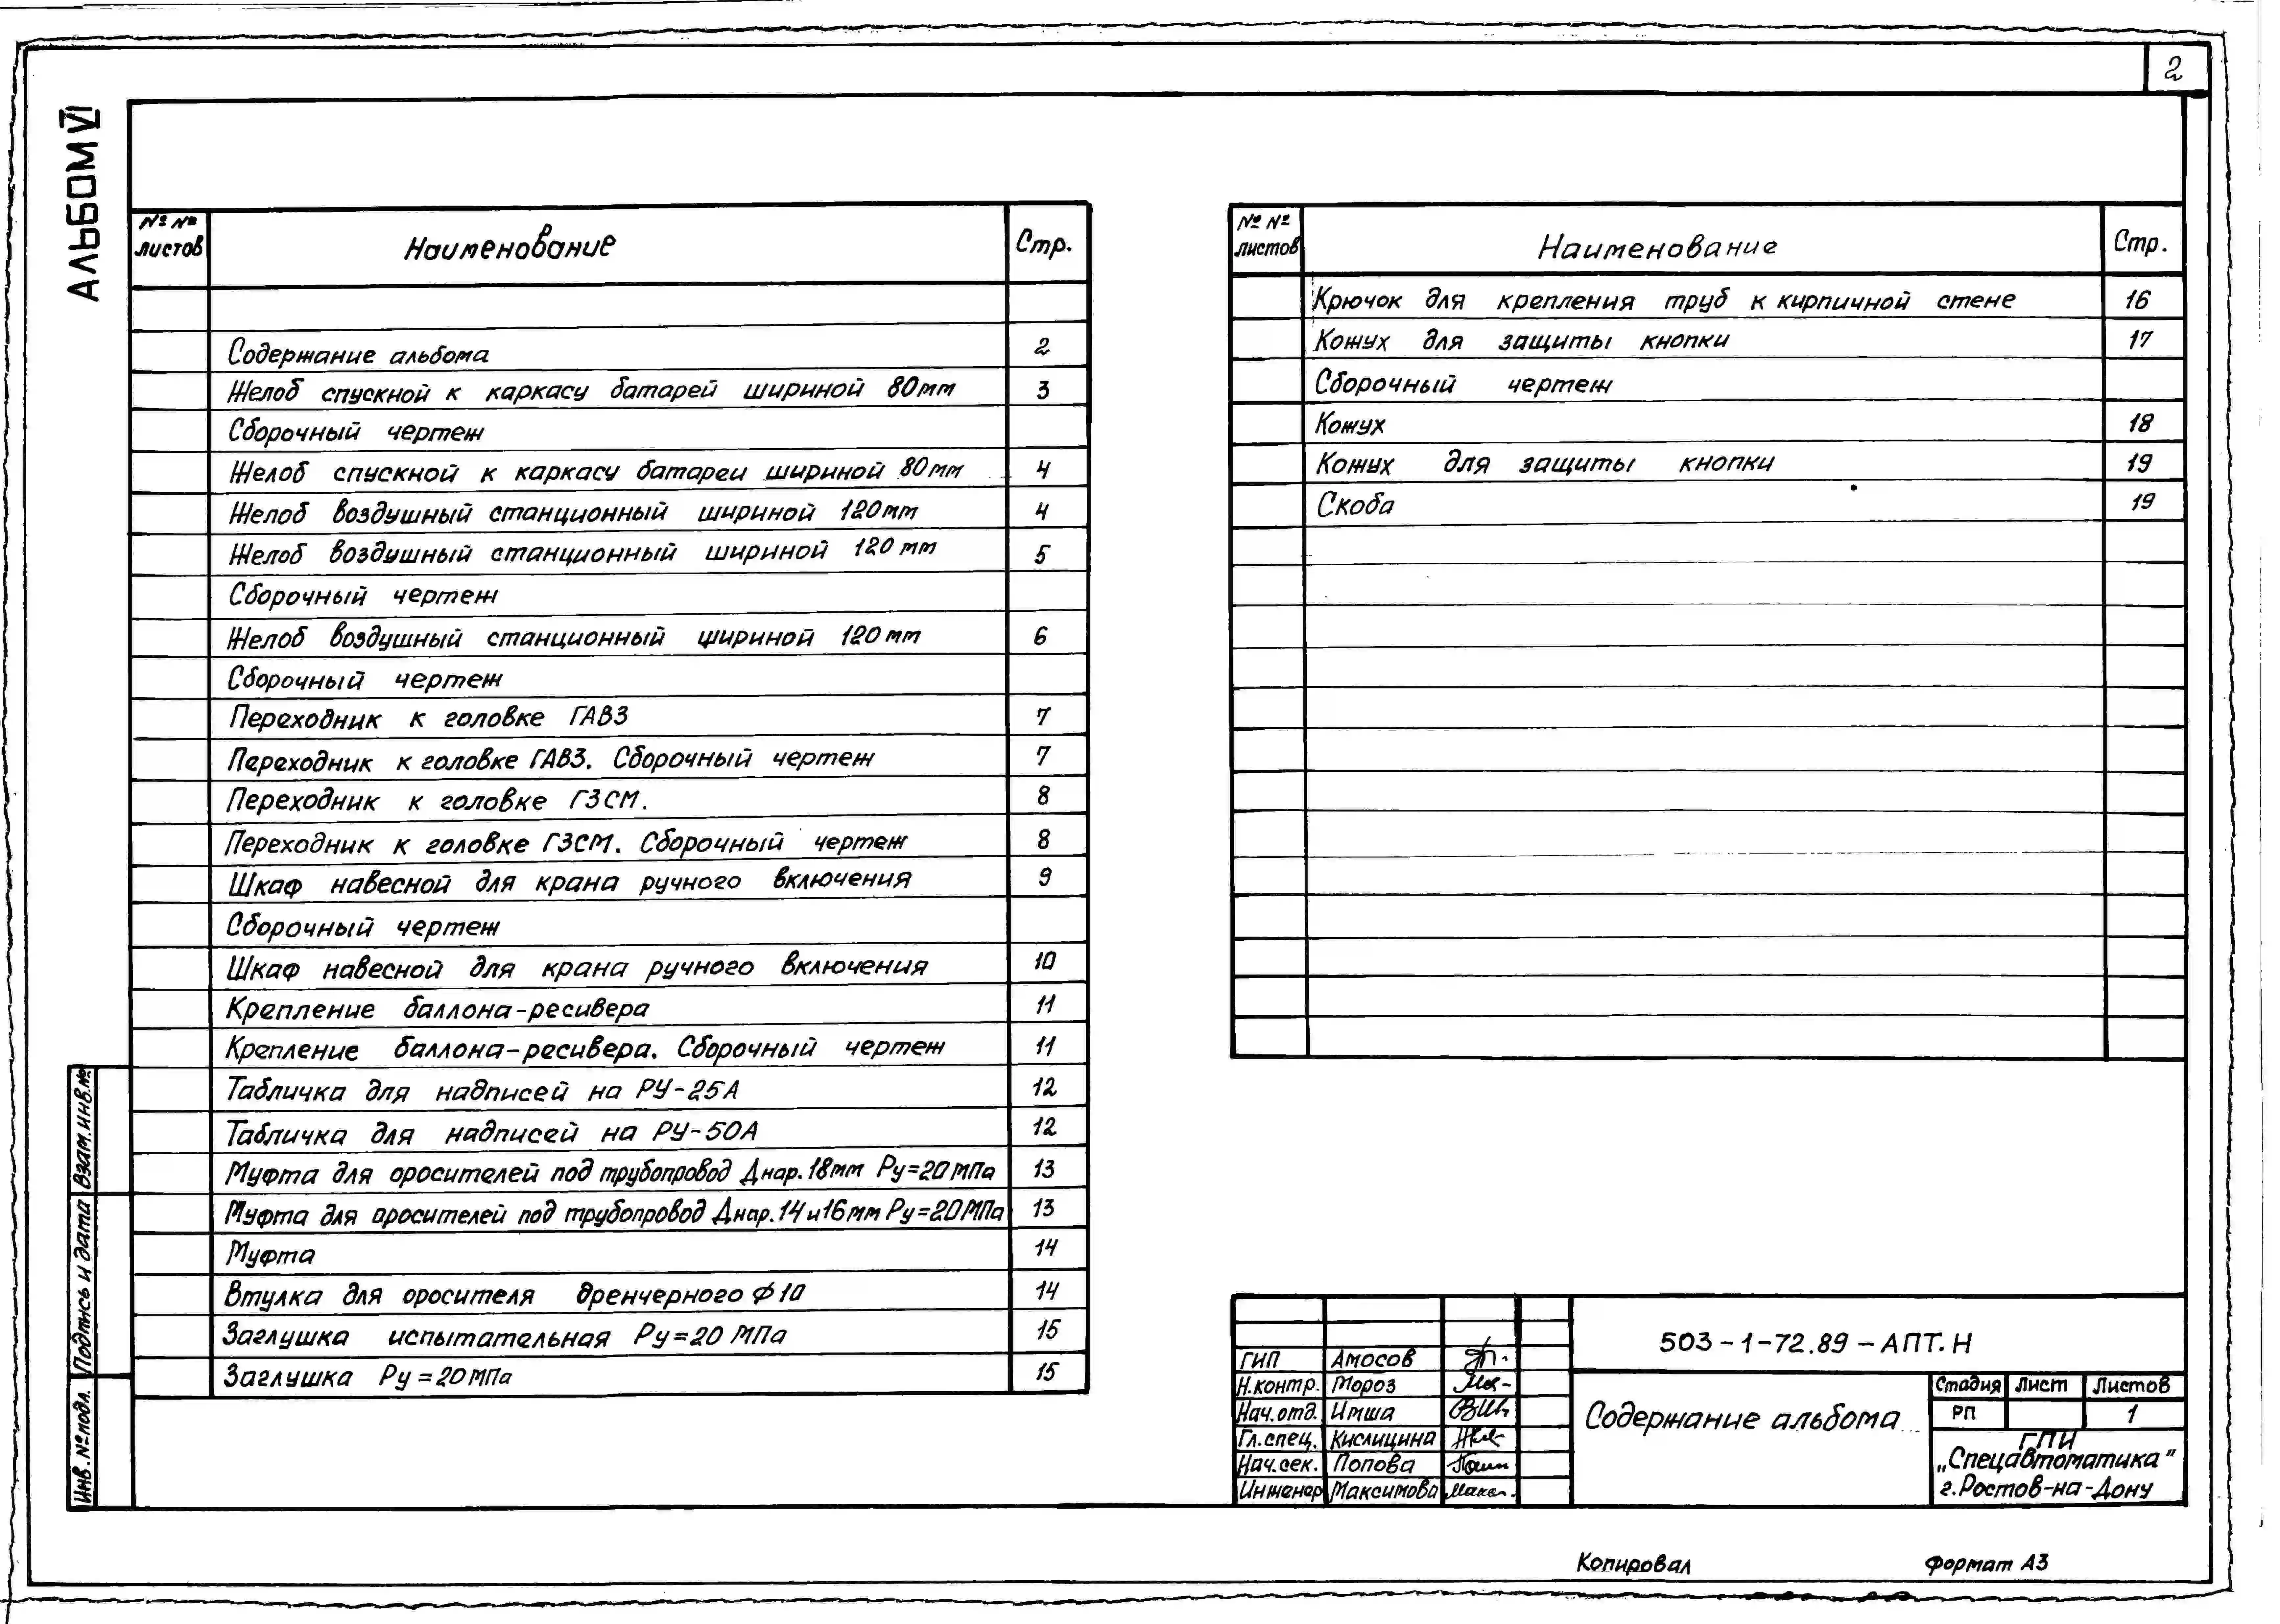 2
АЛЬБОМ VI
№ № листов Наименование Стр.
Содержание альбома 2
Желоб спускной к каркасу батарей шириной 80мм 3
Сборочный чертеж
Желоб спускной к каркасу батареи шириной 80мм 4
Желоб воздушный станционный шириной 120мм 4
Желоб воздушный станционный шириной 120мм 5
Сборочный чертеж
Желоб воздушный станционный шириной 120мм 6
Сборочный чертеж
Переходник к головке ГАВЗ 7
Переходник к головке ГАВЗ. Сборочный чертеж 7
Переходник к головке ГЗСМ. 8
Переходник к головке ГЗСМ. Сборочный чертеж 8
Шкаф навесной для крана ручного включения 9
Сборочный чертеж
Шкаф навесной для крана ручного включения 10
Крепление баллона-ресивера 11
Крепление баллона-ресивера. Сборочный чертеж 11
Табличка для надписей на РУ-25А 12
Табличка для надписей на РУ-50А 12
Муфта для оросителей под трубопровод Днар.18мм Ру=20МПа 13
Муфта для оросителей под трубопровод Днар.14и16мм Ру=20МПа 13
Муфта 14
Втулка для оросителя дренчерного ф10 14
Заглушка испытательная Ру=20 МПа 15
Заглушка Ру=20МПа 15
№ № листов Наименование Стр.
Крючок для крепления труб к кирпичной стене 16
Кожух для защиты кнопки 17
Сборочный чертеж
Кожух 18
Кожух для защиты кнопки 19
Скоба 19
Взам.инв.№
Подпись и дата
Инв.№подл.
503-1-72.89-АПТ.Н
ГИП Амосов
Н.контр. Мороз
Нач.отд. Имша
Гл.спец. Кислицина
Нач.сек. Попова
Инженер Максимова
Содержание альбома
Стадия Лист Листов
РП 1
ГПИ
„Спецавтоматика"
г.Ростов-на-Дону
Копировал Формат А3